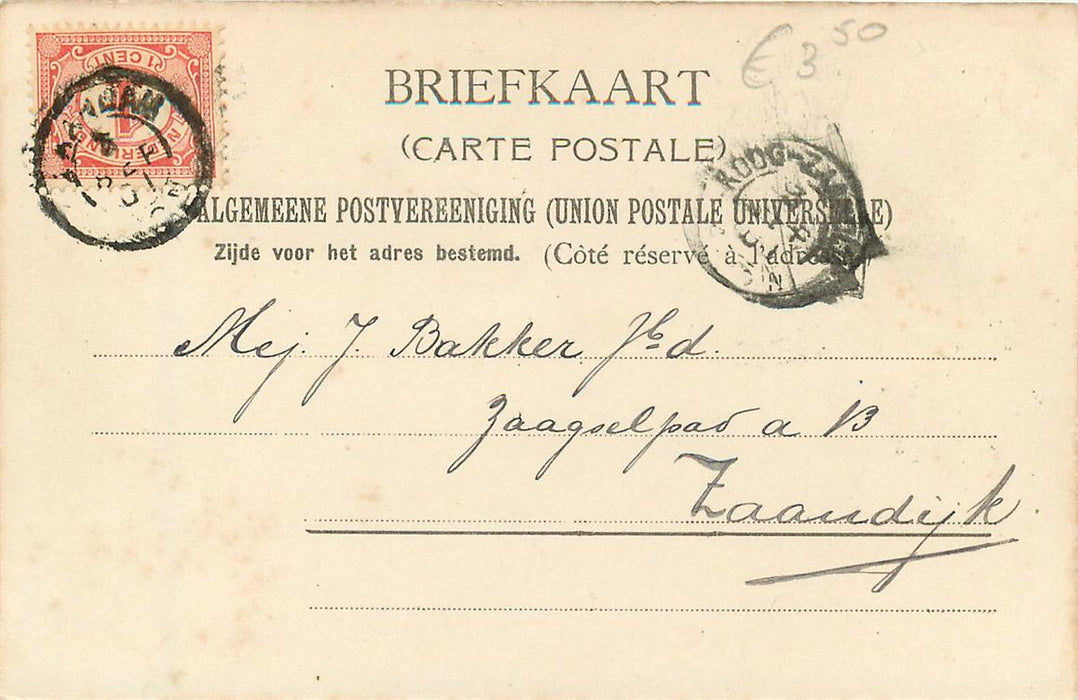 1 CENT
€ 3.50
BRIEFKAART
(CARTE POSTALE)
ALGEMEENE POSTVEREENIGING (UNION POSTALE UNIVERSELLE)
Zijde voor het adres bestemd. (Côté réservé à l'adresse)
KOOG-ZAANDIJK
Mej. J. Bakker Jbd.
Zaagselpad a 13
Zaandijk